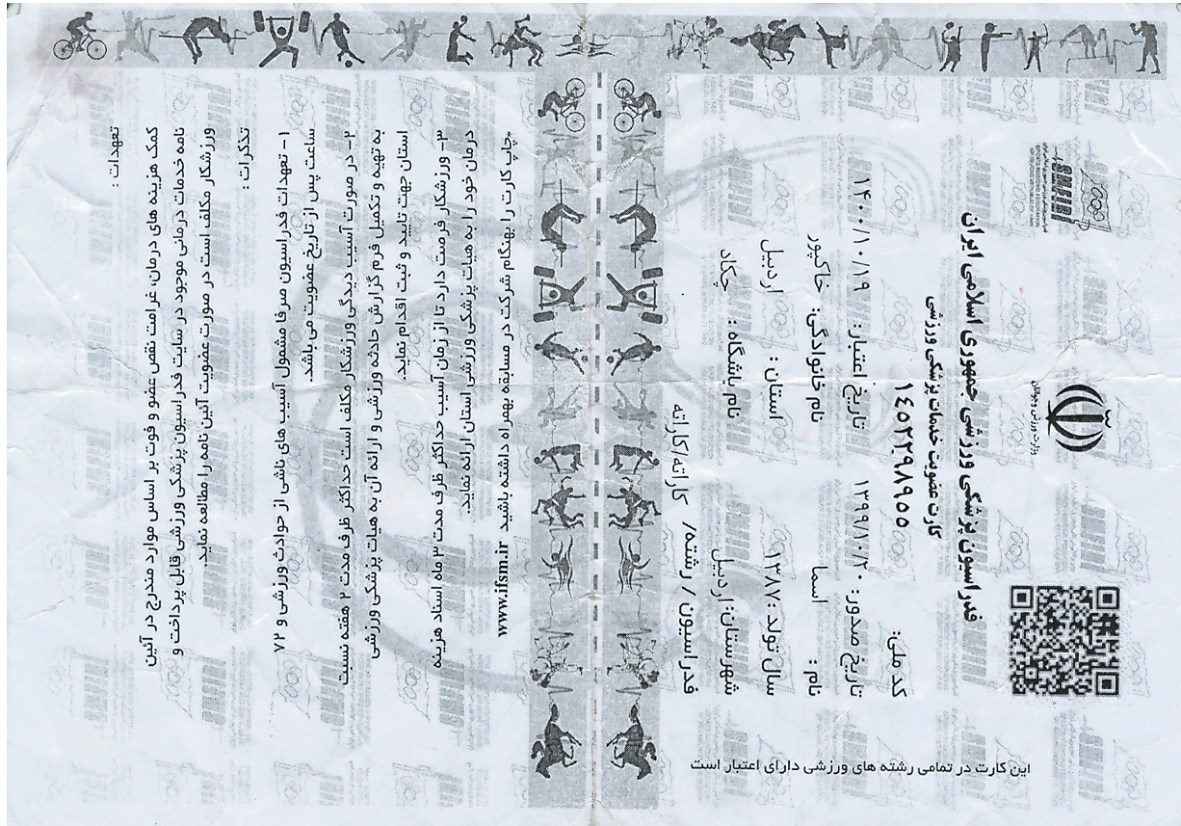 وزارت ورزش و جوانان
فدراسیون پزشکی ورزشی جمهوری اسلامی ایران
کارت عضویت خدمات پزشکی ورزشی
کد ملی: ۱٤٥۲۲۹۸۹٥٥
تاریخ صدور: ۱۳۹۹/۱۰/۲۰ تاریخ اعتبار: ۱۴۰۰/۱۰/۱۹
نام: اسما نام خانوادگی: خاکپور
سال تولد: ۱۳۸۷ استان: اردبیل
شهرستان: اردبیل نام باشگاه: چکاد
فدراسیون / رشته/ کاراته/کاراته
این کارت در تمامی رشته های ورزشی دارای اعتبار است
*چاپ کارت را بهنگام شرکت در مسابقه بهمراه داشته باشید www.ifsm.ir
تعهدات :
کمک هزینه های درمان، غرامت نقص عضو و فوت بر اساس موارد مندرج در آئین
نامه خدمات درمانی موجود در سایت فدراسیون پزشکی ورزشی قابل پرداخت و
ورزشکار مکلف است در صورت عضویت آئین نامه را مطالعه نماید.
تذکرات :
۱- تعهدات فدراسیون صرفا مشمول آسیب های ناشی از حوادث ورزشی و ۷۲
ساعت پس از تاریخ عضویت می باشد.
۲- در صورت آسیب دیدگی ورزشکار مکلف است حداکثر ظرف مدت ۲ هفته نسبت
به تهیه و تکمیل فرم گزارش حادثه ورزشی و ارائه آن به هیات پزشکی ورزشی
استان جهت تایید و ثبت اقدام نماید.
۳- ورزشکار فرصت دارد تا از زمان آسیب حداکثر ظرف مدت ۳ ماه اسناد هزینه
درمان خود را به هیات پزشکی ورزشی استان ارائه نماید.